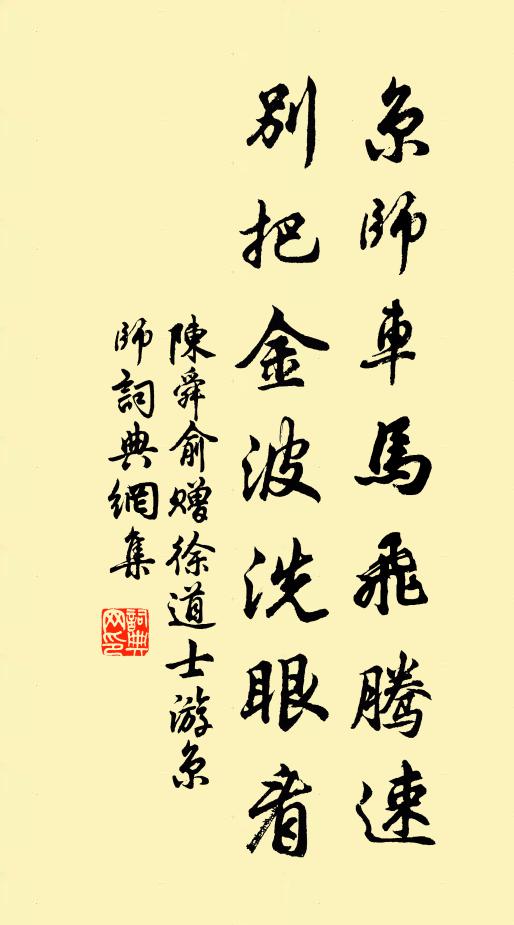 京師車馬飛騰速
別把金波洗眼看
陳舜俞贈徐道士游京
師詞典網集
詞典網印